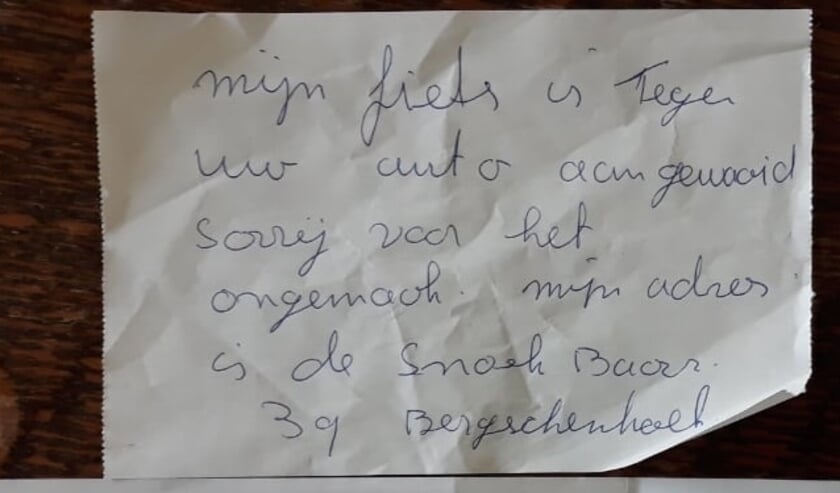 mijn fiets is Tegen
uw auto aangewaaid
sorrij voor het
ongemach. mijn adres
is de Snoek Baars.
39 Bergschenhoek